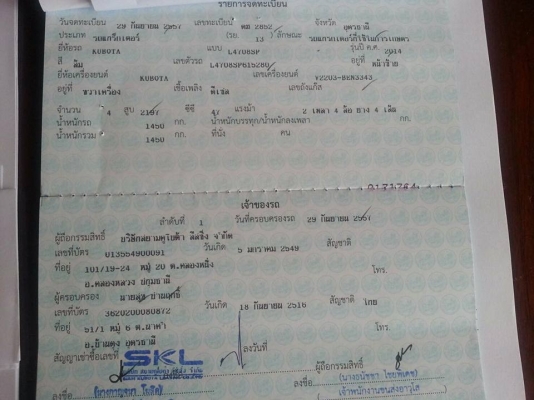 รายการจดทะเบียน
วันจดทะเบียน 29 กันยายน 2557 เลขทะเบียน ตค 2862 จังหวัด อุดรธานี
ประเภท รถแทรกเตอร์ (รย. 13) ลักษณะ รถแทรกเตอร์ที่ใช้ในการเกษตร
ยี่ห้อรถ KUBOTA แบบ L4708SP รุ่นปี ค.ศ. 2014
สี ส้ม เลขตัวรถ อยู่ที่
ยี่ห้อเครื่องยนต์ KUBOTA เลขเครื่องยนต์
อยู่ที่ ขวาเครื่อง เชื้อเพลิง ดีเซล เลขถังแก๊ส
จำนวน 4 สูบ 2197 ซีซี 47 แรงม้า 2 เพลา 4 ล้อ ยาง 4 เส้น
น้ำหนักรถ 1450 กก. น้ำหนักบรรทุก/น้ำหนักลงเพลา กก.
น้ำหนักรวม 1450 กก. ที่นั่ง คน
เจ้าของรถ
ลำดับที่ 1 วันที่ครอบครองรถ 29 กันยายน 2557
ผู้ถือกรรมสิทธิ์ บริษัทสยามคูโบต้า ลีสซิ่ง จำกัด
เลขที่บัตร วันเกิด 5 มกราคม 2549 สัญชาติ
ที่อยู่ 101/19-24 หมู่ 20 ต.คลองหนึ่ง โทร.
อ.คลองหลวง ปทุมธานี
ผู้ครอบครอง วันเกิด 18 กันยายน 2516 สัญชาติ ไทย
เลขที่บัตร 3620200080872
ที่อยู่ 51/1 หมู่ 6 โทร.
อ.บ้านดุง อุดรธานี
สัญญาเช่าซื้อเลขที่ SKL ลงวันที่
ผู้ถือกรรมสิทธิ์
ลงชื่อ ลงชื่อ
เจ้าพนักงานขนส่งอาวุโส